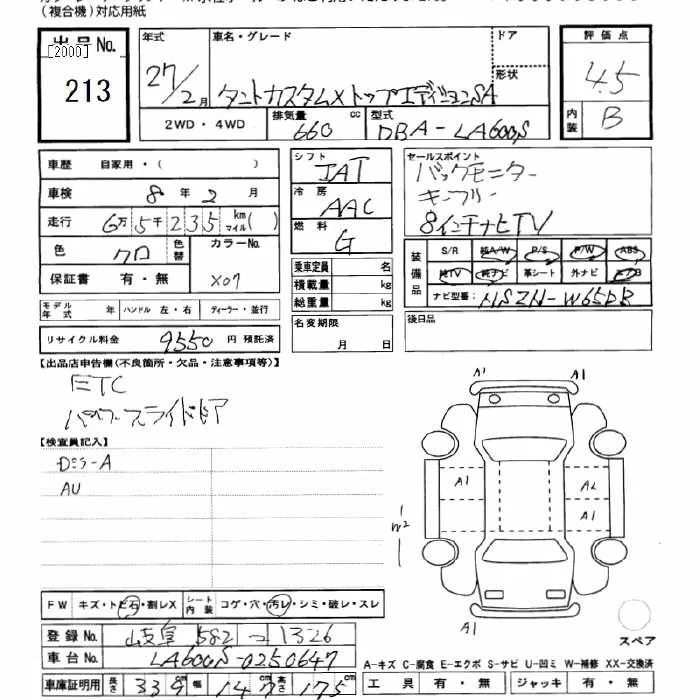 (複合機)対応用紙
出品No.
[2000]
213
年式 車名・グレード ドア
27/2月 タントカスタムX トップエディションSA
形状
2WD・4WD 排気量 660 cc 型式 DBA-LA600S
評価点
4.5
内装 B
車歴 自家用・( )
車検 8年2月
走行 6万5千235 km マイル( )
色 クロ 色替 カラーNo. X07
保証書 有・無
モデル年式 年 ハンドル 左・右 ディーラー・並行
リサイクル料金 9550円 預託済
シフト IAT
冷房 AAC
燃料 G
乗車定員 名
積載量 kg
総重量 kg
名変期限 月 日
セールスポイント
バックモニター
キーフリー
8インチナビTV
装備品 S/R 純A/W P/S P/W ABS
純TV 純ナビ 革シート 外ナビ エアB
ナビ型番: NSZN-W65DB
後日品
【出品店申告欄(不良箇所・欠品・注意事項等)】
ETC
パワースライドドア
【検査員記入】
AU
A1 A1
A1 A2
A1
W2
A1
スペア
FW キズ・トビ石・割レX シート内装 コゲ・穴・汚レ・シミ・破レ・スレ
登録No. 岐阜 582 つ 1326
車台No. LA600S-0250647
車庫証明用 長さ 339cm 幅 147cm 高さ 175cm
A-キズ C-腐食 E-エクボ S-サビ U-凹ミ W-補修 XX-交換済
工具 有・無 ジャッキ 有・無